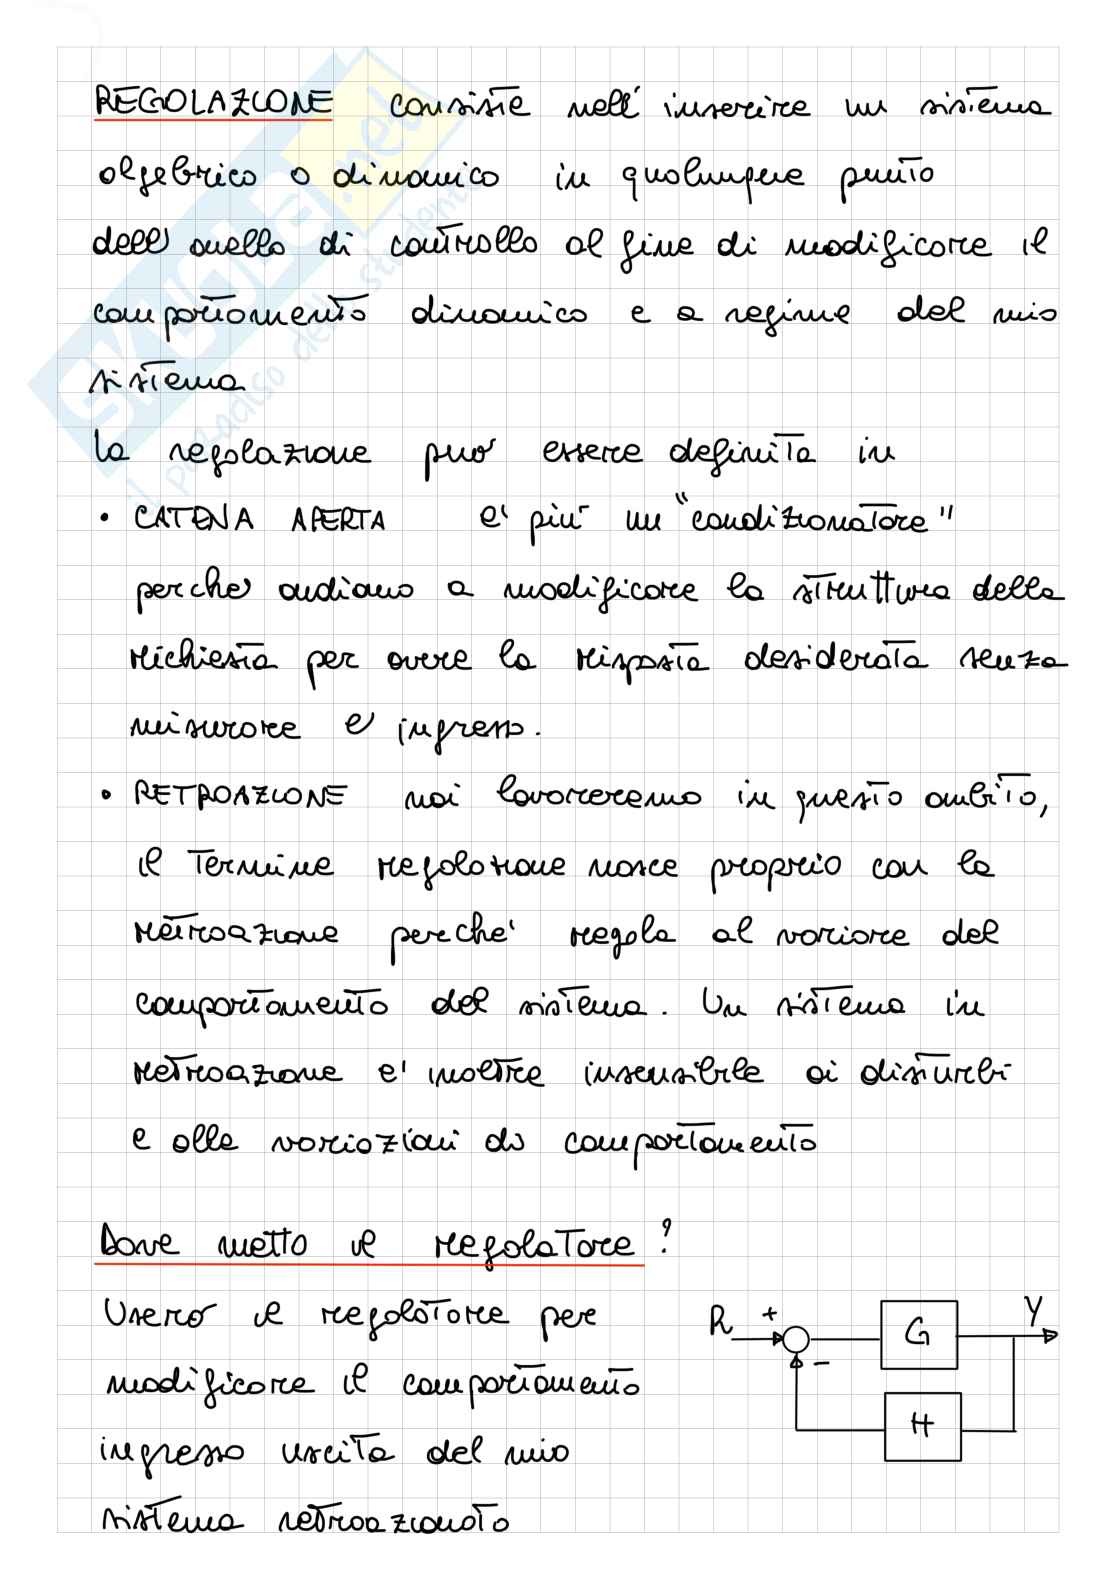 REGOLAZIONE consiste nell' inserire un sistema
algebrico o dinamico in qualunque punto
dell' anello di controllo al fine di modificare il
comportamento dinamico e a regime del mio
sistema
la regolazione puo' essere definita in
• CATENA APERTA e' piu' un "condizionatore"
perche' andiamo a modificare la struttura della
richiesta per avere la risposta desiderata senza
misurare l' ingresso.
• RETROAZIONE noi lavoreremo in questo ambito,
il termine regolazione nasce proprio con la
retroazione perche' regola al variare del
comportamento del sistema. Un sistema in
retroazione e' inoltre insensibile ai disturbi
e alle variazioni di comportamento
Dove metto il regolatore?
Usero' il regolatore per
modificare il comportamento
ingresso uscita del mio
sistema retroazionato
R + G Y
-
H
SKUOLA.net
il paradiso dello studente